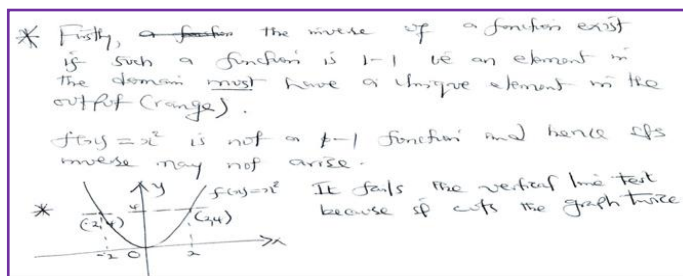 * Firstly, a function the inverse of a function exist
if such a function is 1-1 ie an element in
the domain must have a unique element in the
output (range).
f(x) = x² is not a 1-1 function and hence its
inverse may not arise.
* y f(x)=x² It fails the vertical line test
4 (-2,4) (2,4) because it cuts the graph twice
-2 0 2 x